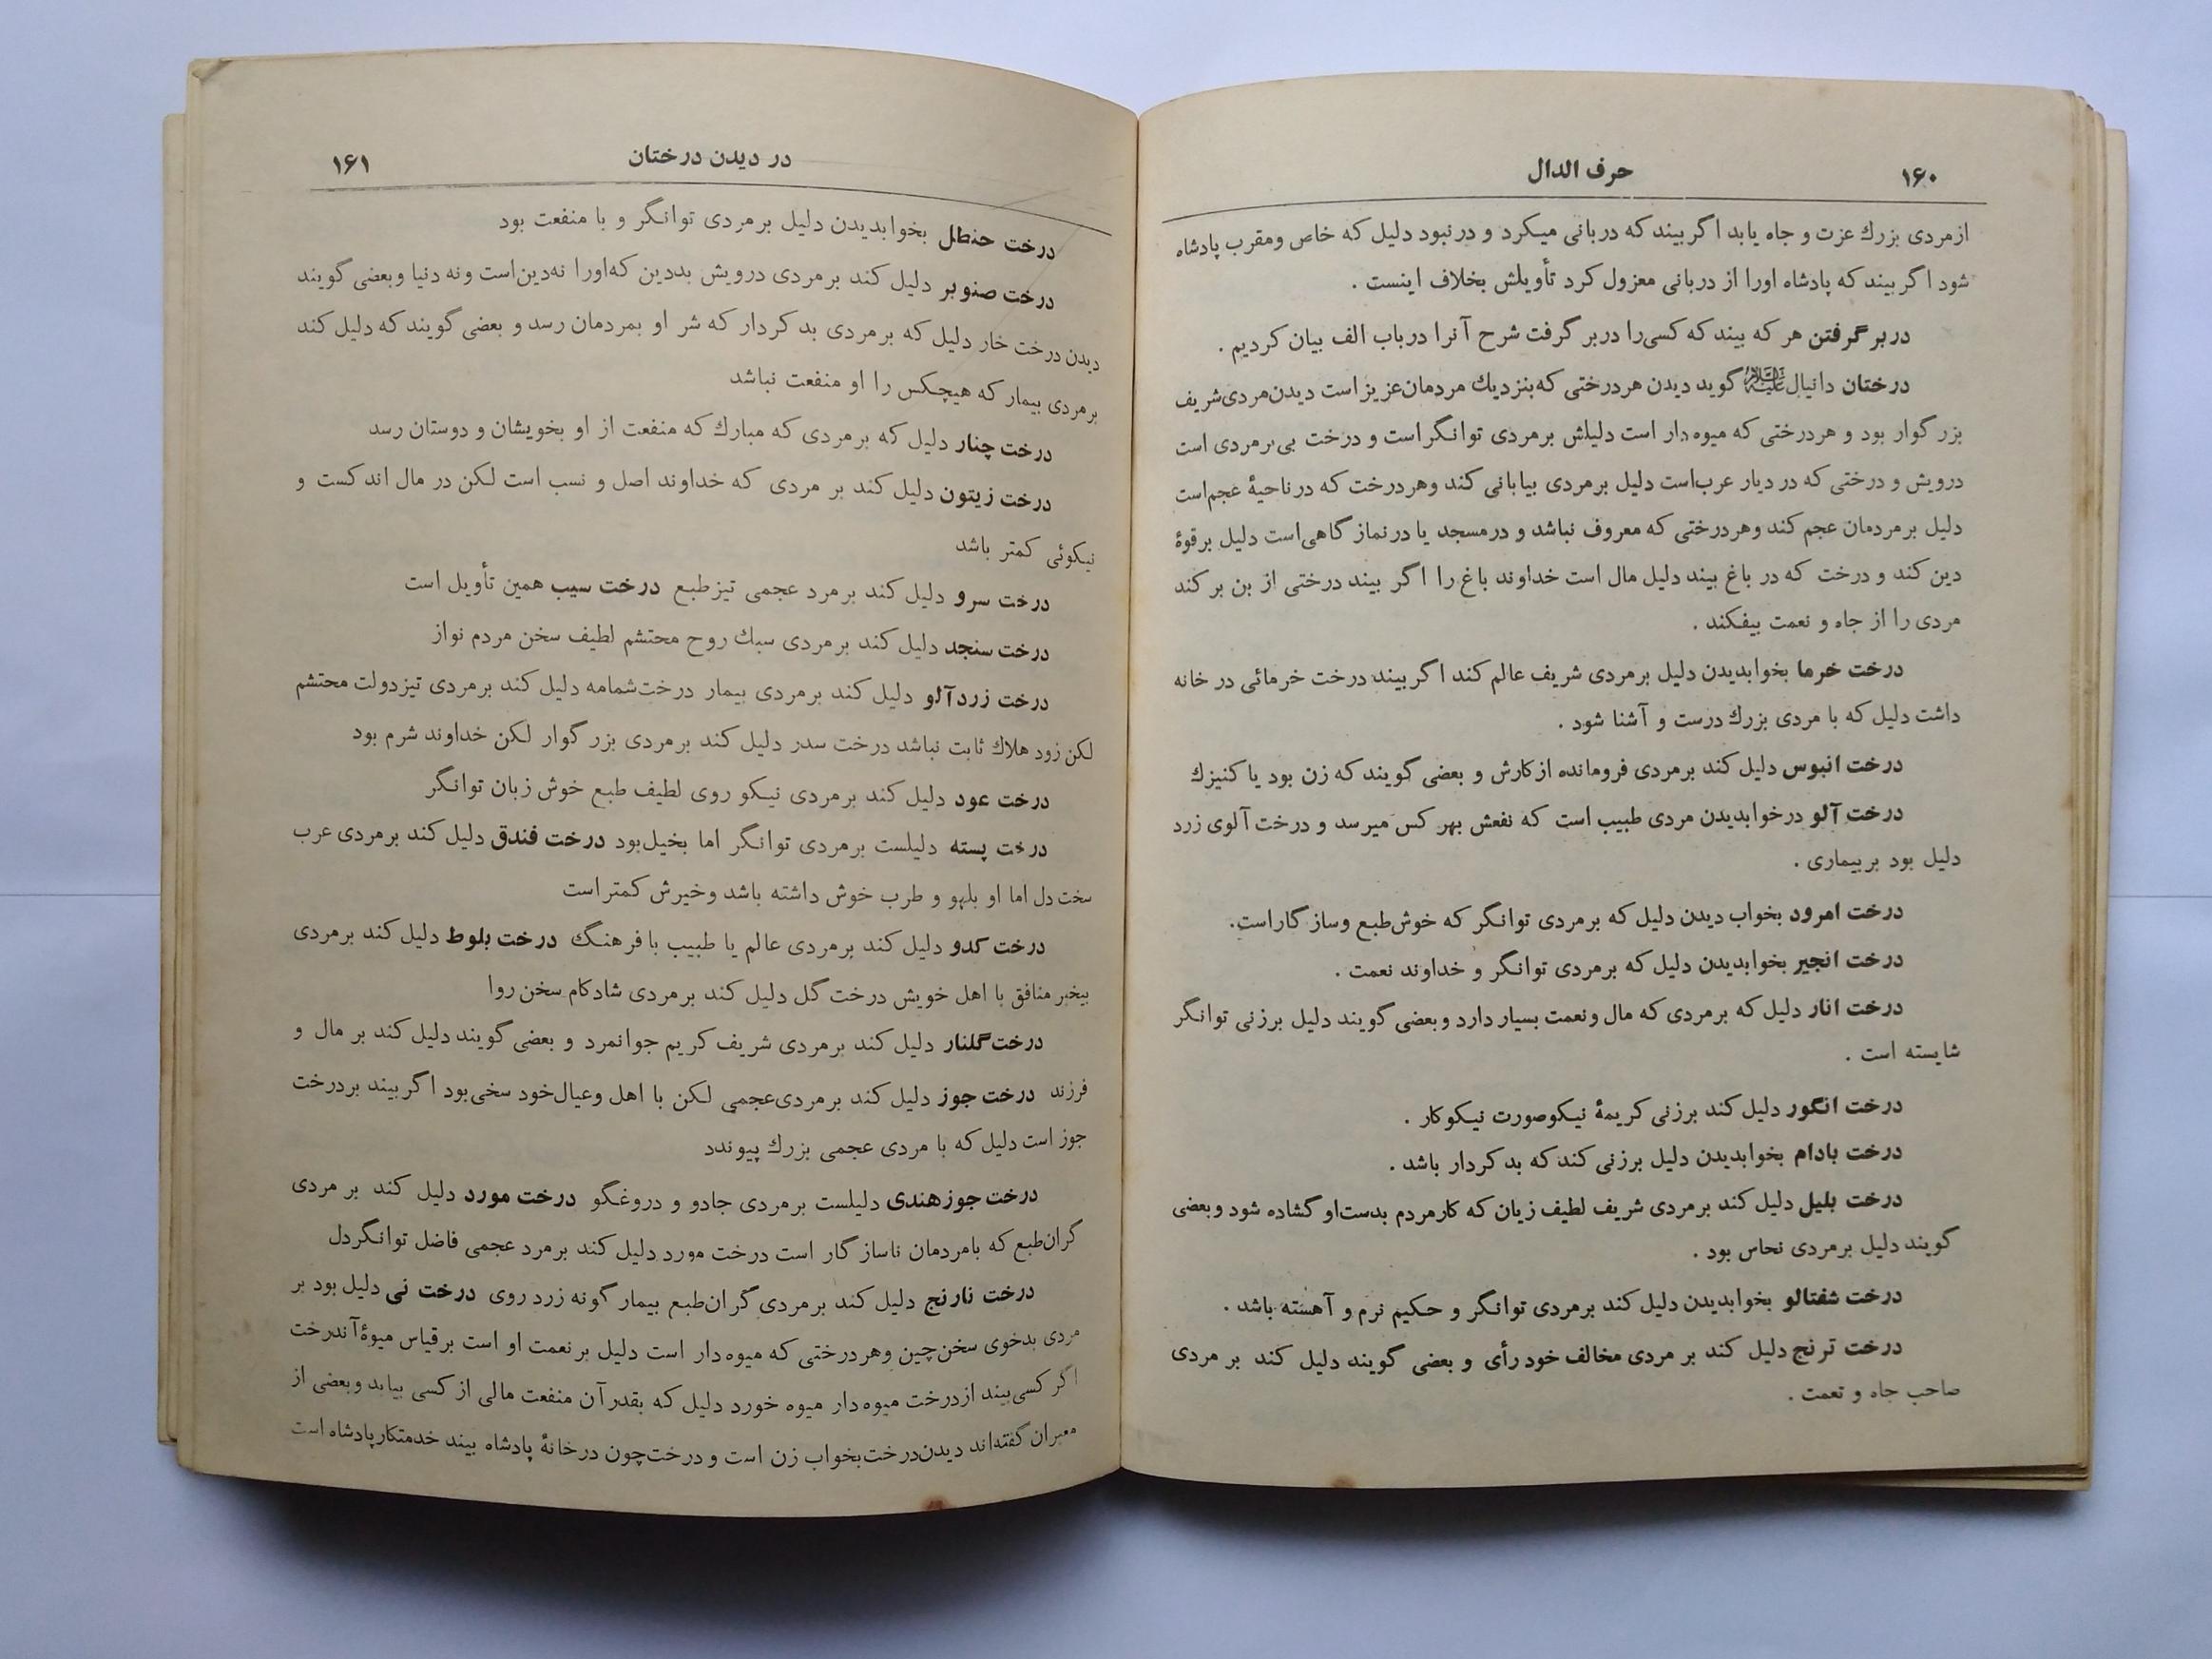 ۱۶۰
حرف الدال
ازمردی بزرك عزت و جاه یابد اگربیند که دربانی میکرد و درنبود دلیل که خاص ومقرب پادشاه
شود اگربیند که پادشاه اورا از دربانی معزول کرد تأویلش بخلاف اینست .
دربر گرفتن هر که بیند که کسی‌را دربر گرفت شرح آنرا درباب الف بیان کردیم .
درختان دانیال علیه السلام گوید دیدن هردرختی که‌بنزدیك مردمان‌عزیزاست دیدن‌مردی‌شریف
بزرگوار بود و هردرختی که میوه‌دار است دلیلش برمردی توانگراست و درخت بی‌برمردی است
درویش و درختی که در دیار عرب‌است دلیل برمردی بیابانی کند وهردرخت که درناحیهٔ عجم‌است
دلیل برمردمان عجم کند وهردرختی که معروف نباشد و درمسجد یا درنماز گاهی‌است دلیل برقوهٔ
دین کند و درخت که در باغ بیند دلیل مال است خداوند باغ را اگر بیند درختی از بن بر کند
مردی را از جاه و نعمت بیفکند .
درخت خرما بخوابدیدن دلیل برمردی شریف عالم کند اگربیند درخت خرمائی در خانه
داشت دلیل که با مردی بزرك درست و آشنا شود .
درخت انبوس دلیل کند برمردی فرومانده ازکارش و بعضی گویند که زن بود یا کنیزك
درخت آلو درخوابدیدن مردی طبیب است که نفعش بهر کس میرسد و درخت آلوی زرد
دلیل بود بربیماری .
درخت امرود بخواب دیدن دلیل که برمردی توانگر که خوش‌طبع وسازگاراست.
درخت انجیر بخوابدیدن دلیل که برمردی توانگر و خداوند نعمت .
درخت انار دلیل که برمردی که مال ونعمت بسیار دارد وبعضی گویند دلیل برزنی توانگر
شایسته است .
درخت انگور دلیل کند برزنی کریمهٔ نیکوصورت نیکوکار .
درخت بادام بخوابدیدن دلیل برزنی کند که بد کردار باشد .
درخت بلیل دلیل کند برمردی شریف لطیف زبان که کارمردم بدست‌او گشاده شود وبعضی
گویند دلیل برمردی نحاس بود .
درخت شفتالو بخوابدیدن دلیل کند برمردی توانگر و حکیم نرم و آهسته باشد .
درخت ترنج دلیل کند بر مردی مخالف خود رأی و بعضی گویند دلیل کند بر مردی
صاحب جاه و نعمت .
در دیدن درختان
۱۶۱
درخت حنطل بخوابدیدن دلیل برمردی توانگر و با منفعت بود
درخت صنوبر دلیل کند برمردی درویش بددین که‌اورا نه‌دین‌است ونه دنیا وبعضی گویند
دیدن درخت خار دلیل که برمردی بد کردار که شر او بمردمان رسد و بعضی گویند که دلیل کند
برمردی بیمار که هیچکس را او منفعت نباشد
درخت چنار دلیل که برمردی که مبارك که منفعت از او بخویشان و دوستان رسد
درخت زیتون دلیل کند بر مردی که خداوند اصل و نسب است لکن در مال اندکست و
نیکوئی کمتر باشد
درخت سرو دلیل کند برمرد عجمی تیزطبع درخت سیب همین تأویل است
درخت سنجد دلیل کند برمردی سبك روح محتشم لطیف سخن مردم نواز
درخت زردآلو دلیل کند برمردی بیمار درخت‌شمامه دلیل کند برمردی تیزدولت محتشم
لکن زود هلاك ثابت نباشد درخت سدر دلیل کند برمردی بزرگوار لکن خداوند شرم بود
درخت عود دلیل کند برمردی نیکو روی لطیف طبع خوش زبان توانگر
درخت پسته دلیلست برمردی توانگر اما بخیل‌بود درخت فندق دلیل کند برمردی عرب
سخت دل اما او بلهو و طرب خوش داشته باشد وخیرش کمتر است
درخت کدو دلیل کند برمردی عالم یا طبیب با فرهنگ درخت بلوط دلیل کند برمردی
بیخبر منافق با اهل خویش درخت گل دلیل کند برمردی شادکام سخن روا
درخت گلنار دلیل کند برمردی شریف کریم جوانمرد و بعضی گویند دلیل کند بر مال و
فرزند درخت جوز دلیل کند برمردی‌عجمی لکن با اهل وعیال‌خود سخی‌بود اگربیند بردرخت
جوز است دلیل که با مردی عجمی بزرك پیوندد
درخت جوزهندی دلیلست برمردی جادو و دروغگو درخت مورد دلیل کند بر مردی
گران‌طبع که بامردمان ناسازگار است درخت مورد دلیل کند برمرد عجمی فاضل توانگردل
درخت نارنج دلیل کند برمردی گران‌طبع بیمار گونه زرد روی درخت نی دلیل بود بر
مردی بدخوی سخن‌چین وهردرختی که میوه‌دار است دلیل برنعمت او است برقیاس میوهٔ‌آندرخت
اگر کسی‌بیند ازدرخت میوه‌دار میوه خورد دلیل که بقدرآن منفعت مالی از کسی بیابد وبعضی از
معبران گفته‌اند دیدن‌درخت‌بخواب زن است و درخت‌چون درخانهٔ پادشاه بیند خدمتکارپادشاه است